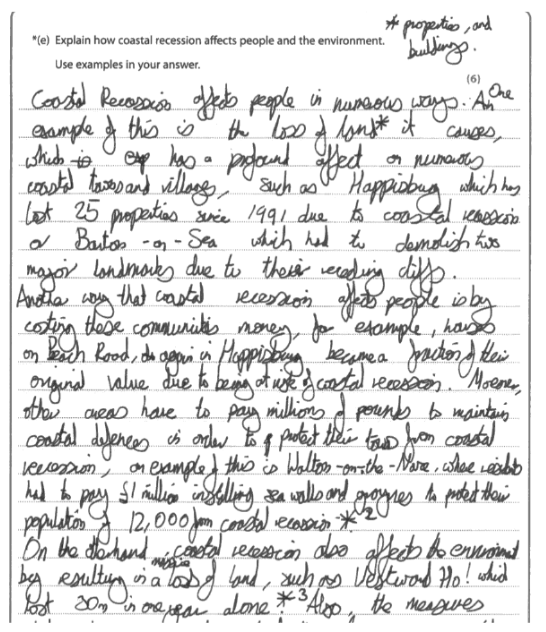 * properties, and
buildings.
*(e) Explain how coastal recession affects people and the environment.
Use examples in your answer.
(6)
Coastal Recession affects people in numerous ways. One
example of this is the loss of land* it causes,
which has a profound affect on numerous
coastal towns and villages, such as Happisburg which has
lost 25 properties since 1991 due to coastal recession
or Barton-on-Sea which had to demolish two
major landmarks due to their receding cliffs.
Another way that coastal recession affects people is by
costing these communities money, for example, houses
on Beach Road, again in Happisburg became a fraction of their
original value due to being at risk of coastal recession. Moreover,
other areas have to pay millions of pounds to maintain
coastal defences in order to protect their town from coastal
recession, an example of this is Walton-on-the-Naze, whose residents
had to pay £1 million installing sea walls and groynes to protect their
population of 12,000 from coastal recession.*2
On the other hand, coastal recession also affects the environment
by resulting in a massive loss of land, such as Westward Ho! which
lost 30m in one year alone.*3 Also, the measures